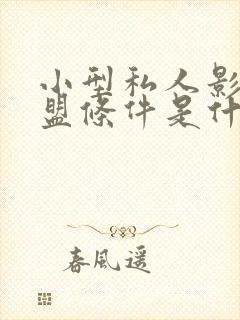 小型私人影
盟條件是什
春風遥